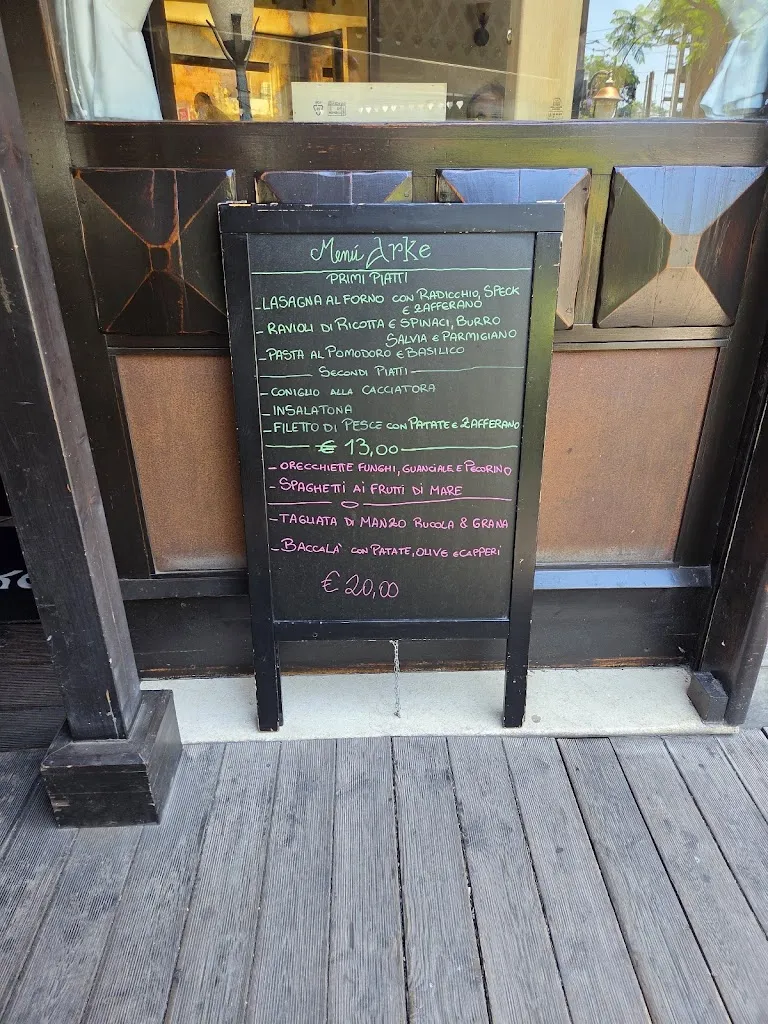 Menù Arke
PRIMI PIATTI
- LASAGNA AL FORNO CON RADICCHIO, SPECK
E ZAFFERANO
- RAVIOLI DI RICOTTA E SPINACI, BURRO
SALVIA E PARMIGIANO
- PASTA AL POMODORO E BASILICO
SECONDI PIATTI
- CONIGLIO ALLA CACCIATORA
- INSALATONA
- FILETTO DI PESCE CON PATATE E ZAFFERANO
€ 13,00
- ORECCHIETTE FUNGHI, GUANCIALE E PECORINO
- SPAGHETTI Ai FRUTTI DI MARE
- TAGLIATA DI MANZO RUCOLA & GRANA
- BACCALA' CON PATATE, OLIVE E CAPPERI
€ 20,00